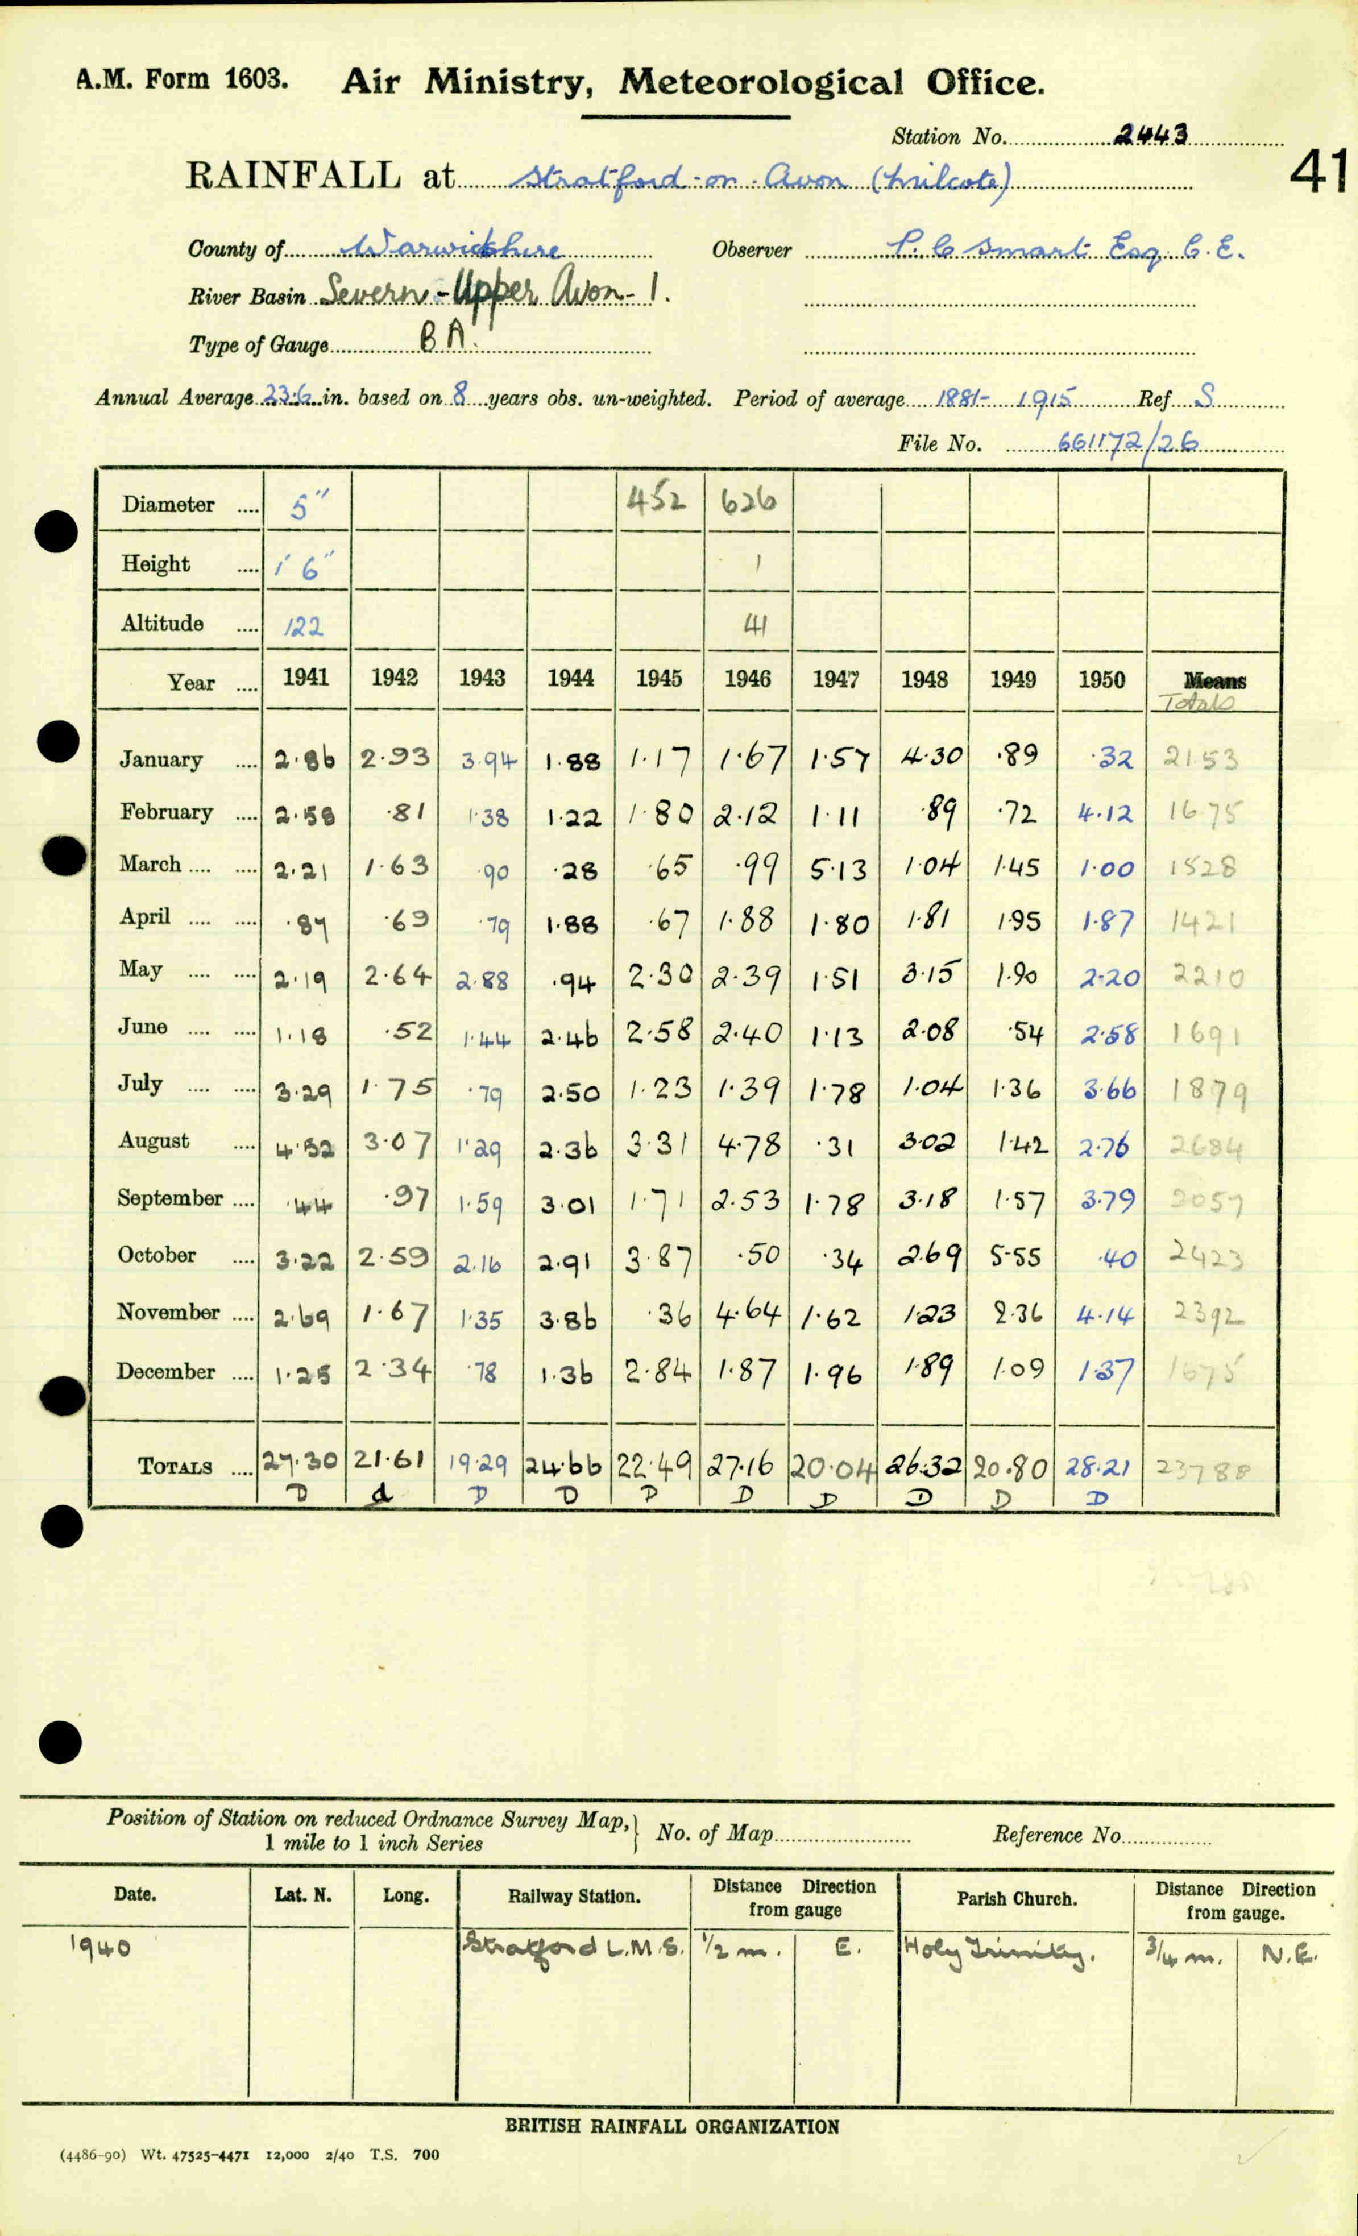 A.M. Form 1603. Air Ministry, Meteorological Office.
Station No. 2443
41
RAINFALL at Stratford-on-Avon (Milcote)
County of Warwickshire Observer P. C Smart Esq. C.E.
River Basin Severn - Upper Avon - 1.
Type of Gauge BA.
Annual Average 23.6 in. based on 8 years obs. un-weighted. Period of average 1881- 1915 Ref S
File No. 661172/26
Diameter 5" 452 626
Height 1' 6" 1
Altitude 122 41
Year 1941 1942 1943 1944 1945 1946 1947 1948 1949 1950 Means
Totals
January 2.86 2.93 3.94 1.88 1.17 1.67 1.57 4.30 .89 .32 21.53
February 2.58 .81 1.38 1.22 1.80 2.12 1.11 .89 .72 4.12 16.75
March 2.21 1.63 .90 .28 .65 .99 5.13 1.04 1.45 1.00 1528
April .87 .69 .79 1.88 .67 1.88 1.80 1.81 1.95 1.87 1421
May 2.19 2.64 2.88 .94 2.30 2.39 1.51 3.15 1.90 2.20 2210
June 1.18 .52 1.44 2.46 2.58 2.40 1.13 2.08 .54 2.58 1691
July 3.29 1.75 .79 2.50 1.23 1.39 1.78 1.04 1.36 3.66 1879
August 4.52 3.07 1.29 2.36 3.31 4.78 .31 3.02 1.42 2.76 2684
September .44 .97 1.59 3.01 1.71 2.53 1.78 3.18 1.57 3.79 2057
October 3.22 2.59 2.16 2.91 3.87 .50 .34 2.69 5.55 .40 2423
November 2.69 1.67 1.35 3.86 .36 4.64 1.62 1.23 2.36 4.14 2392
December 1.25 2.34 .78 1.36 2.84 1.87 1.96 1.89 1.09 1.37 1675
TOTALS 27.30 21.61 19.29 24.66 22.49 27.16 20.04 26.32 20.80 28.21 23788
D d D D D D D D D D
Position of Station on reduced Ordnance Survey Map,
1 mile to 1 inch Series
No. of Map Reference No.
Date. Lat. N. Long. Railway Station. Distance Direction from gauge Parish Church. Distance Direction from gauge.
1940 Stratford L.M.S. 1/2 m. E. Holy Trinity. 3/4 m. N.E.
BRITISH RAINFALL ORGANIZATION
(4486-90) Wt. 47525-4471 12,000 2/40 T.S. 700